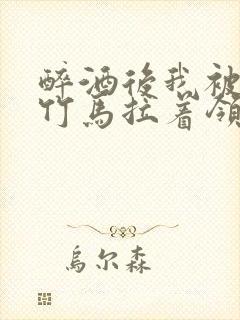 醉酒後我被
竹馬拉着领
烏尔森